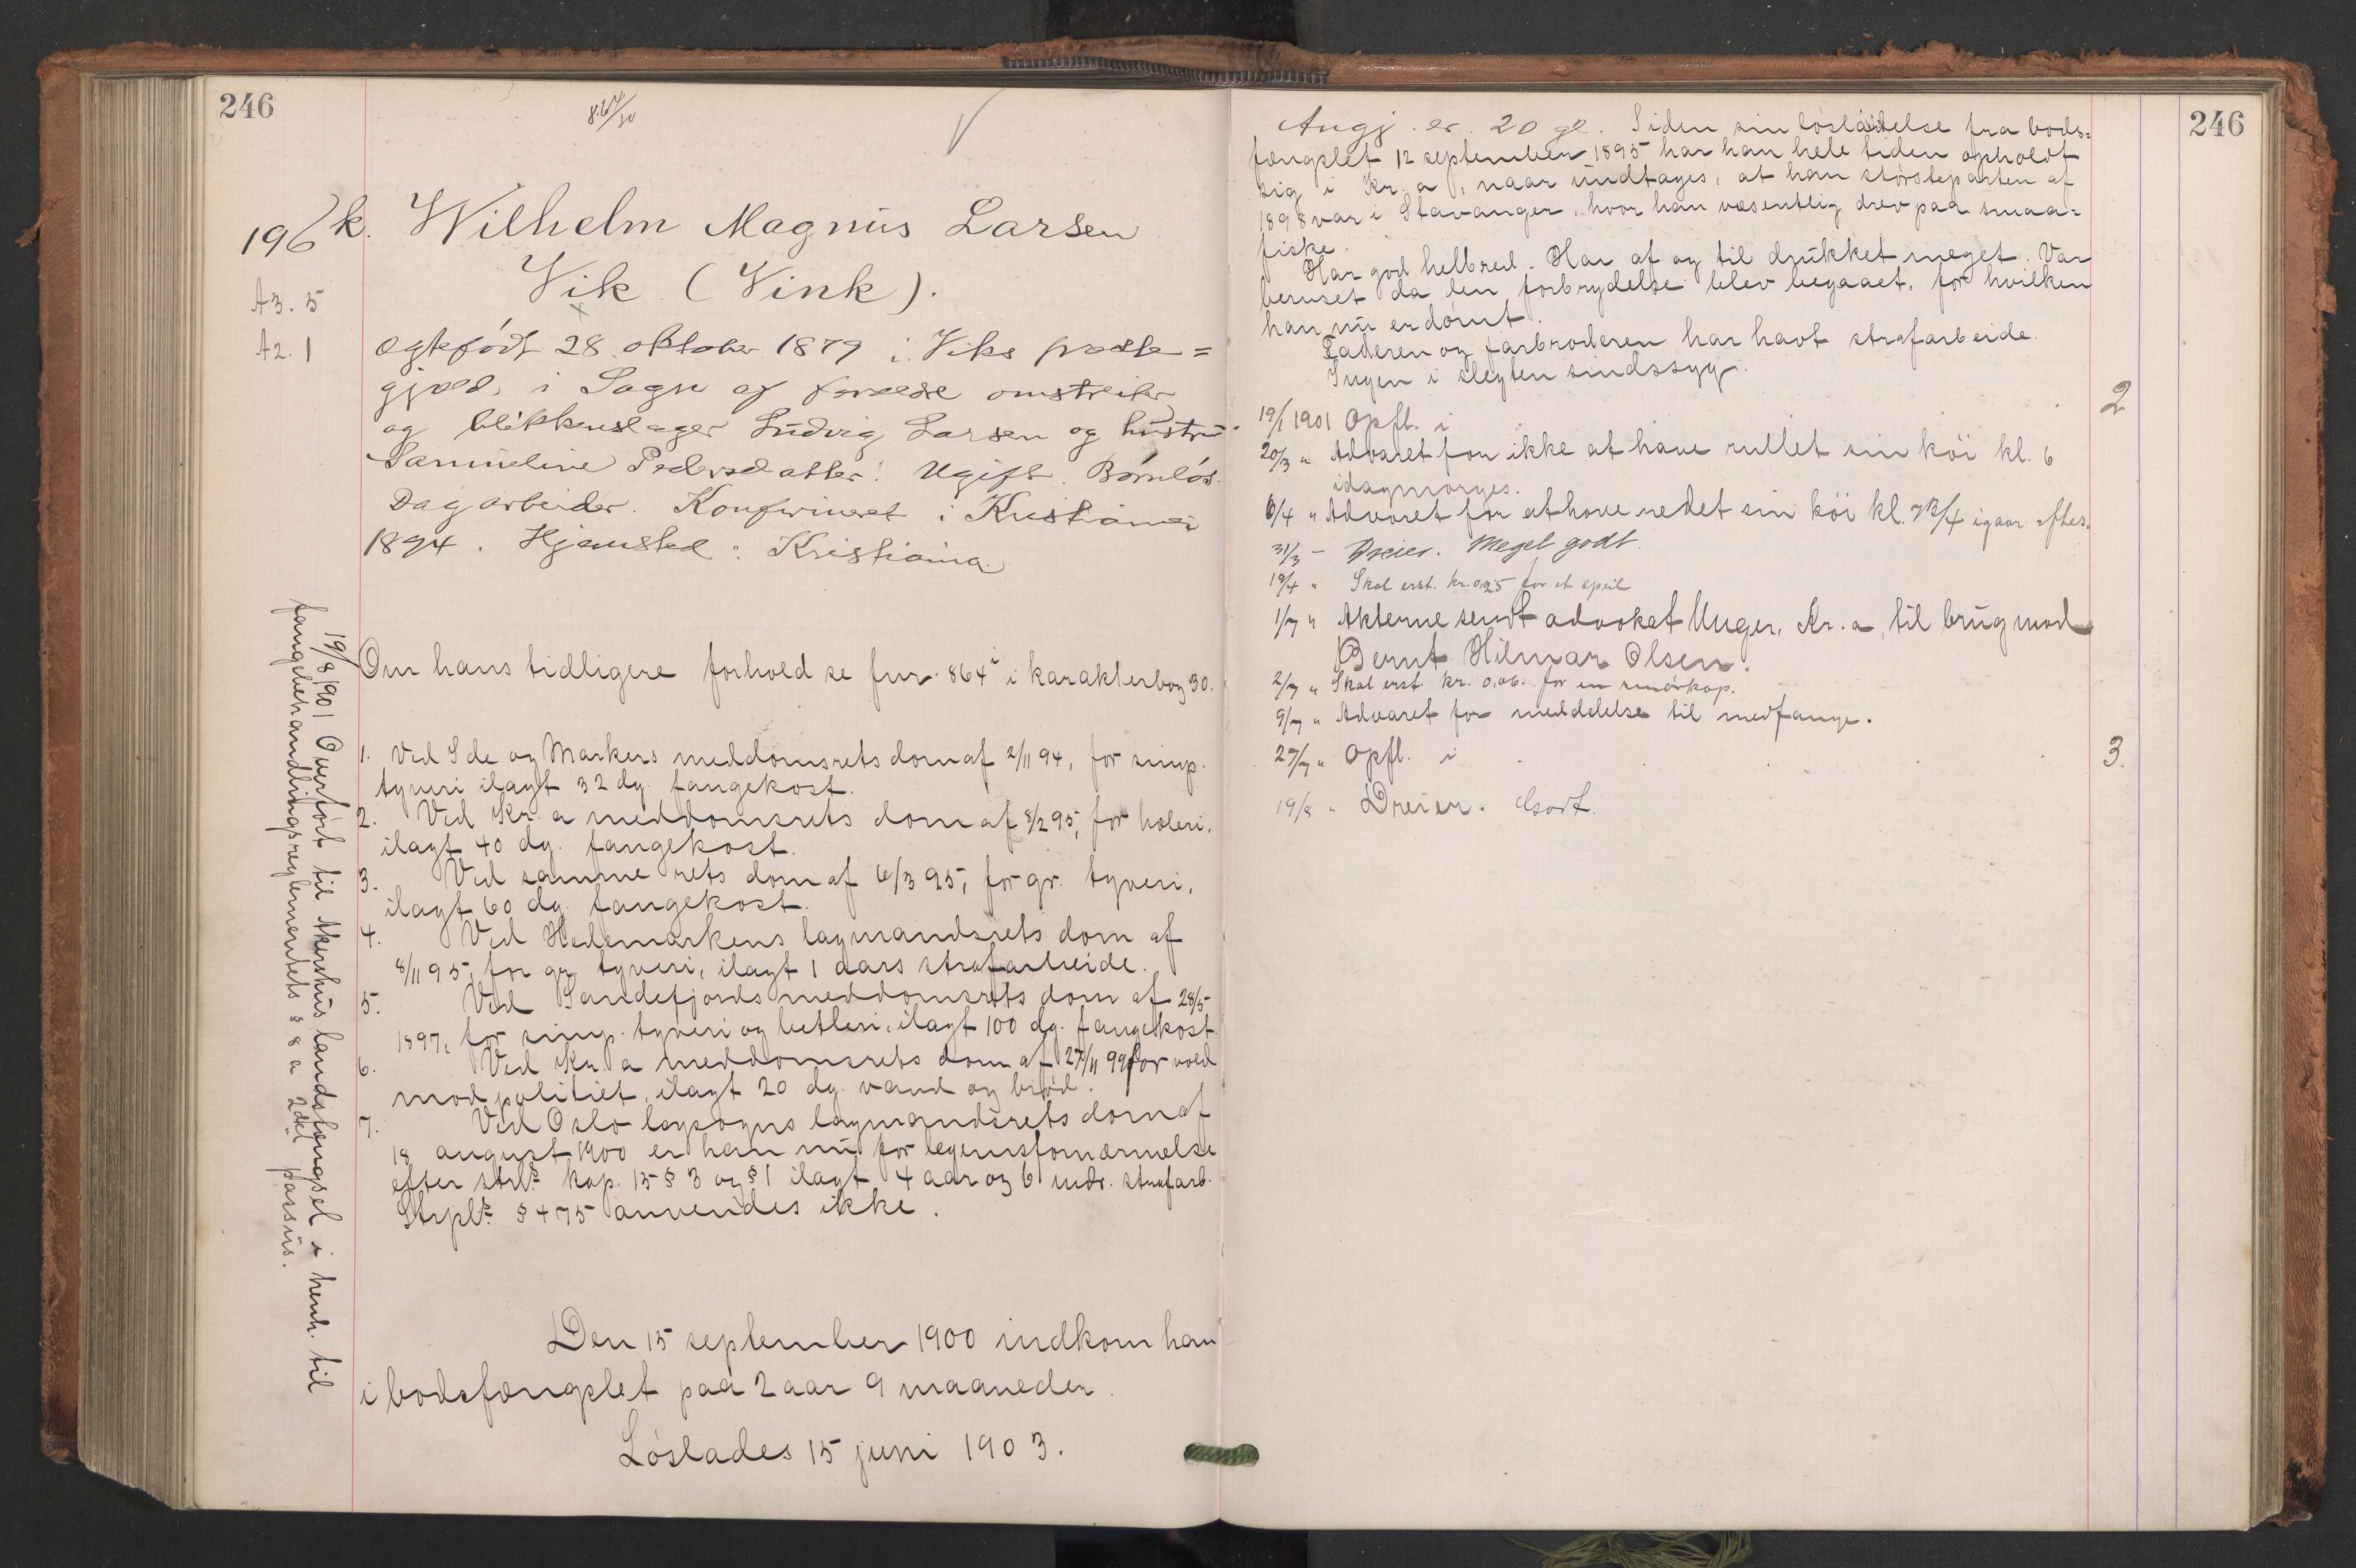 246
864/30
196 k. Wilhelm Magnus Larsen
Vik (Vink).
A3. 5
A2. 1
Ægtefødt 28 oktober 1879 i Viks præste=
gjæld i Sogn af forældre omstreifer
og blikkenslager Ludvig Larsen og hustru
Samueline Pedersdatter. Ugift. Barnløs.
Dagarbeider. Konfirmeret i Kristiania
1894. Hjemsted: Kristiania.
Om hans tidligere forhold se fnr. 864 i karakterbog 30.
1. Ved Ide og Markers meddomsrets dom af 2/11 94, for simp.
tyveri ilagt 32 dg. fangekost.
2. Ved Kr. a meddomsrets dom af 8/2 95, for hæleri,
ilagt 40 dg. fangekost.
3. Ved samme rets dom af 6/3 95, for gr. tyveri,
ilagt 60 dg. fangekost.
4. Ved Hedemarkens lagmandsrets dom af
8/11 95, for gr. tyveri, ilagt 1 aars strafarbeide.
5. Ved Sandefjords meddomsrets dom af 28/5
1897, for simp. tyveri og betleri, ilagt 100 dg. fangekost.
6. Ved Kr. a meddomsrets dom af 27/11 99 for vold
mod politiet, ilagt 20 dg. vand og brød.
7. Ved Oslo lagsogns lagmandsrets dom af
18 august 1900 er han nu for legemsfornærmelse
efter strl. kap. 15 § 3 og § 1 ilagt 4 aar og 6 mdr. strafarb.
Strpl. § 475 anvendes ikke.
Den 15 september 1900 indkom han
i bodsfængslet paa 2 aar 9 maaneder.
Løslades 15 juni 1903.
19/8 1901 Overført til Akershus landsfængsel i henh. til
fangebehandlingsreglementets § 8 a 2det passus.
246
Angj. er 20 gl. Siden sin løsladelse fra bods=
fængslet 12 september 1895 har han hele tiden opholdt
sig i Kr. a, naar undtages, at han størsteparten af
1898 var i Stavanger, hvor han væsentlig drev paa smaa=
fiske.
Har god helbred. Har af og til drukket meget. Var
beruset da den forbrydelse blev begaaet, for hvilken
han nu er dømt.
Faderen og farbroderen har havt strafarbeide.
Ingen i slegten sindssyg.
19/1 1901 Opfl. i 2
20/3 " Advaret for ikke at have rullet sin køi kl. 6
idagmorges.
6/4 " Advaret for at have redet sin køi kl. 7 3/4 igaar aftes.
31/3 - Dreier. Meget godt.
19/4 " Skal erst. kr. 0,25 for et speil
1/7 " Akterne sendt advokat Unger, Kr. a, til brug mod
Bernt Hilmar Olsen.
2/7 " Skal erst. kr. 0,06. for en smørkop.
9/7 " Advaret for meddelelse til medfange.
27/7 " Opfl. i 3.
19/8 " Dreier. Godt.